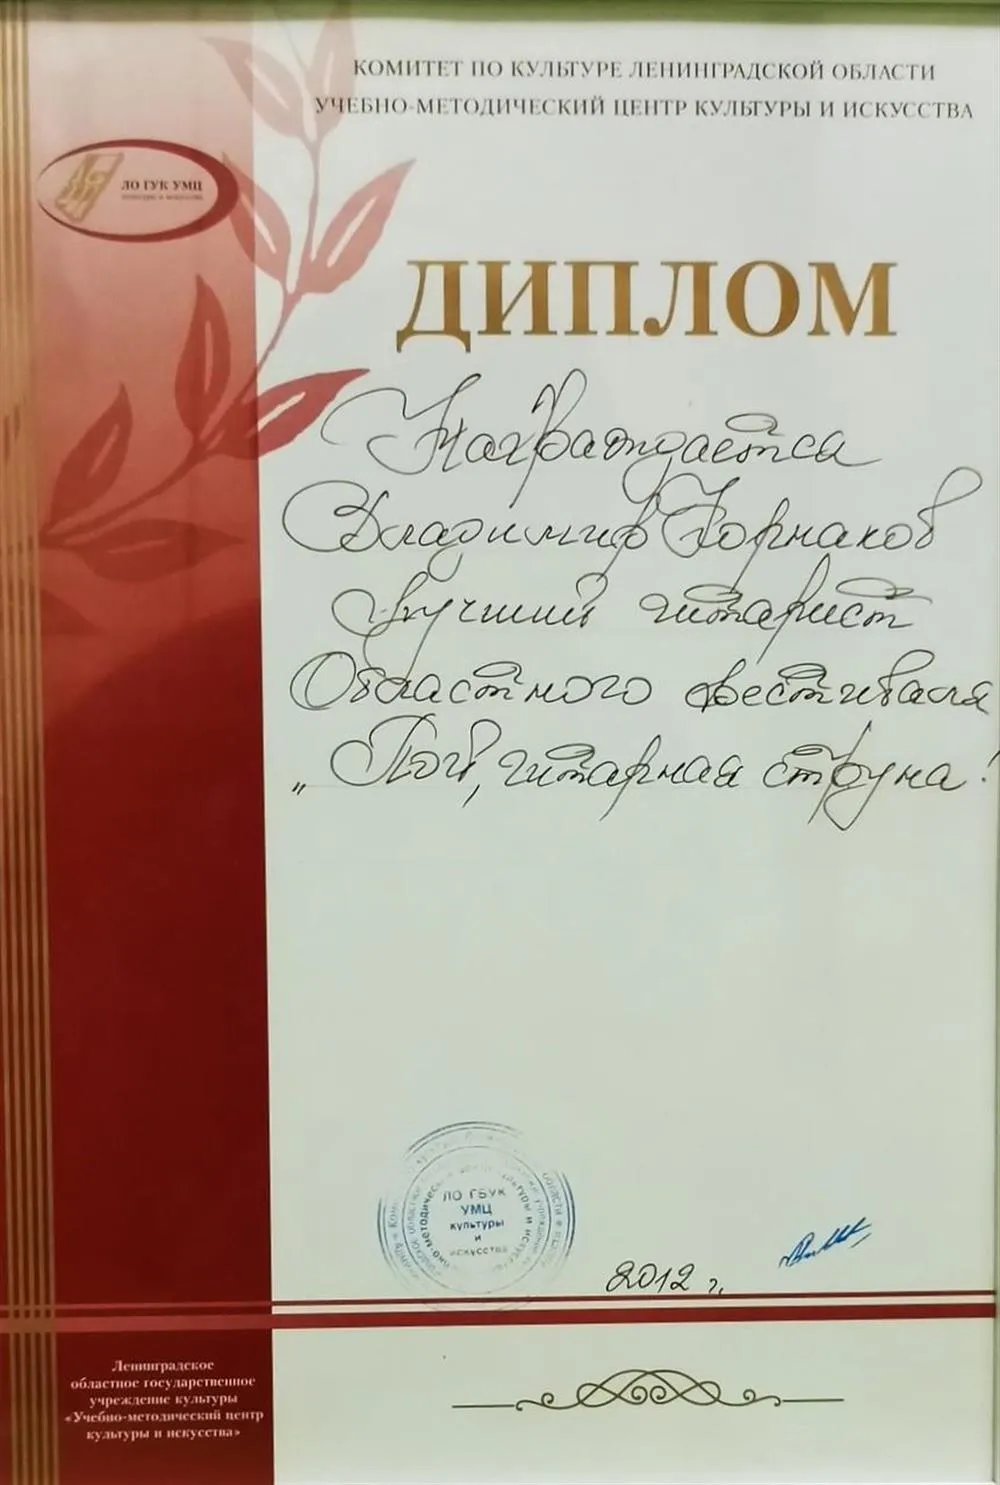 КОМИТЕТ ПО КУЛЬТУРЕ ЛЕНИНГРАДСКОЙ ОБЛАСТИ
УЧЕБНО-МЕТОДИЧЕСКИЙ ЦЕНТР КУЛЬТУРЫ И ИСКУССТВА
ЛО ГУК УМЦ
культуры и искусства
ДИПЛОМ
Награждается
Владимир
Лучший гитарист
Областного фестиваля
„Пой, гитарная струна!
ЛО ГБУК
УМЦ
культуры
и
искусства
2012 г.
Ленинградское
областное государственное
учреждение культуры
«Учебно-методический центр
культуры и искусства»